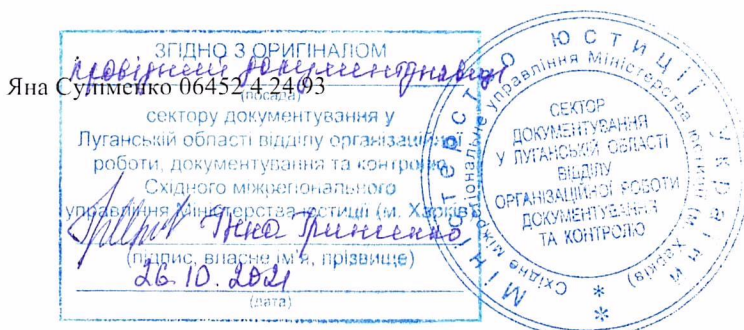 ЗГІДНО З ОРИГІНАЛОМ
провідний документознавець
Яна Суліменко 06452 4 24 93
(посада)
сектору документування у
Луганській області відділу організаційної
роботи, документування та контролю
Східного міжрегіонального
управління Міністерства юстиції (м. Харків)
Інна Гриненко
(підпис, власне ім'я, прізвище)
26.10.2021
(дата)
МІНІСТЕРСТВО ЮСТИЦІЇ УКРАЇНИ
Східне міжрегіональне управління Міністерства юстиції (м. Харків)
СЕКТОР
ДОКУМЕНТУВАННЯ
У ЛУГАНСЬКІЙ ОБЛАСТІ
ВІДДІЛУ
ОРГАНІЗАЦІЙНОЇ РОБОТИ
ДОКУМЕНТУВАННЯ
ТА КОНТРОЛЮ